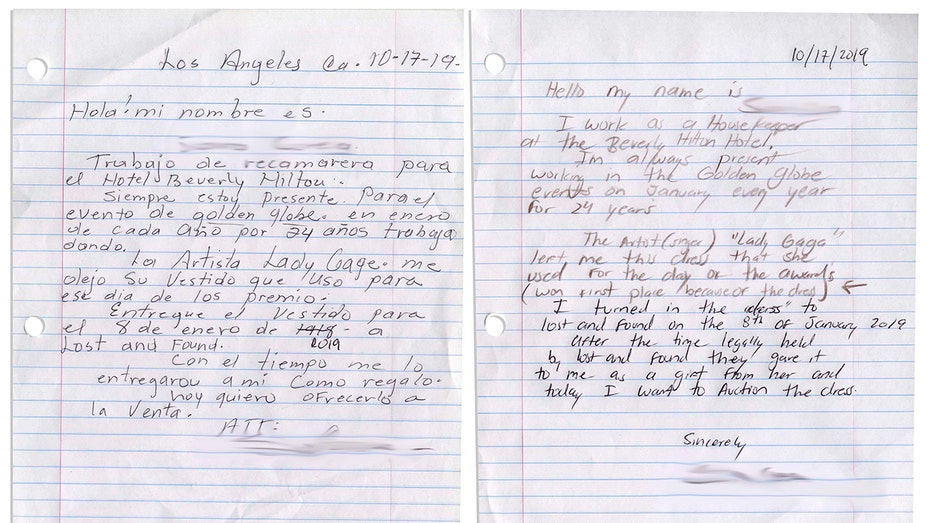 Los Angeles Ca. 10-17-19.
Hola! mi nombre es.
Trabajo de recamarera para
el Hotel Beverly Hiltou.
Siempre estoy presente. Para el
evento de golden globe. en enero
de cada año por 24 años trabaja
dando.
La Artista Lady Gage. me
dejo Su Vestido que Uso para
ese dia de los premio.
Entregue el Vestido para
el 8 de enero de 1918 - a
Lost and Found. 2019
Con el tiempo me lo
entregarou a mi Como regalo.
hoy quiero ofrecerlo a
la Venta.
ATT:
10/17/2019
Hello my name is
I work as a Housekeeper
at the Beverly Hilton Hotel.
Im always present
working in the Golden globe
events on January every year
For 24 years
The Artist (singer) "Lady Gaga"
left me this dress that she
used For the day of the awards
(won First place because of the dress) ←
I turned in the dress" to
lost and Found on the 8th of January 2019
after the time legally held
by lost and found they gave it
to me as a gift from her and
today I want to Auction the dress.
Sincerely